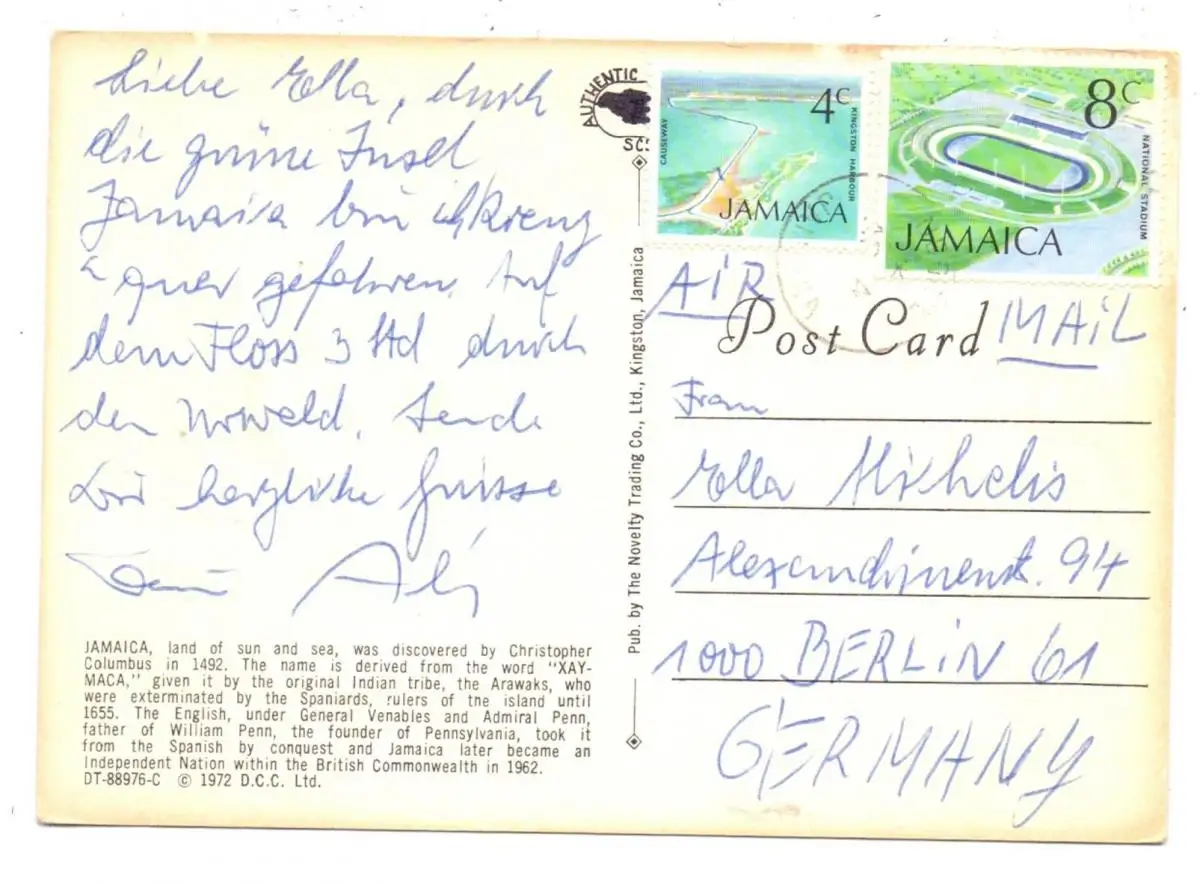 Liebe Ella, durch
die grüne Insel
Jamaica bin ich kreuz
- quer gefahren. Auf
dem Floss 3 Std durch
den Urwald. Sende
Dir herzliche Grüsse
JAMAICA, land of sun and sea, was discovered by Christopher
Columbus in 1492. The name is derived from the word "XAY-
MACA," given it by the original Indian tribe, the Arawaks, who
were exterminated by the Spaniards, rulers of the island until
1655. The English, under General Venables and Admiral Penn,
father of William Penn, the founder of Pennsylvania, took it
from the Spanish by conquest and Jamaica later became an
Independent Nation within the British Commonwealth in 1962.
DT-88976-C © 1972 D.C.C. Ltd.
Pub. by The Novelty Trading Co., Ltd., Kingston, Jamaica
AUTHENTIC
CAUSEWAY
4c
KINGSTON HARBOUR
JAMAICA
8c
NATIONAL STADIUM
JAMAICA
AIR MAIL
Post Card
Frau
Ella Michelis
Alexandrinenstr. 94
1000 BERLIN 61
GERMANY